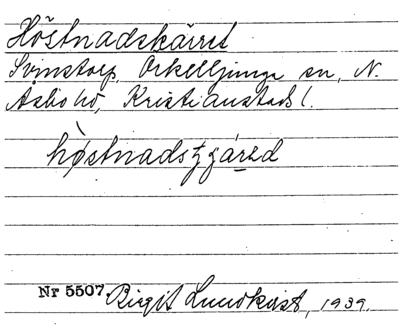 Höstnadskärret
Svinstorp, Örkelljunga sn, N.
Åsbo hd, Kristianstads l.
hǿstnadstȥárəd
Nr 5507. Birgit Lundkvist, 1939.